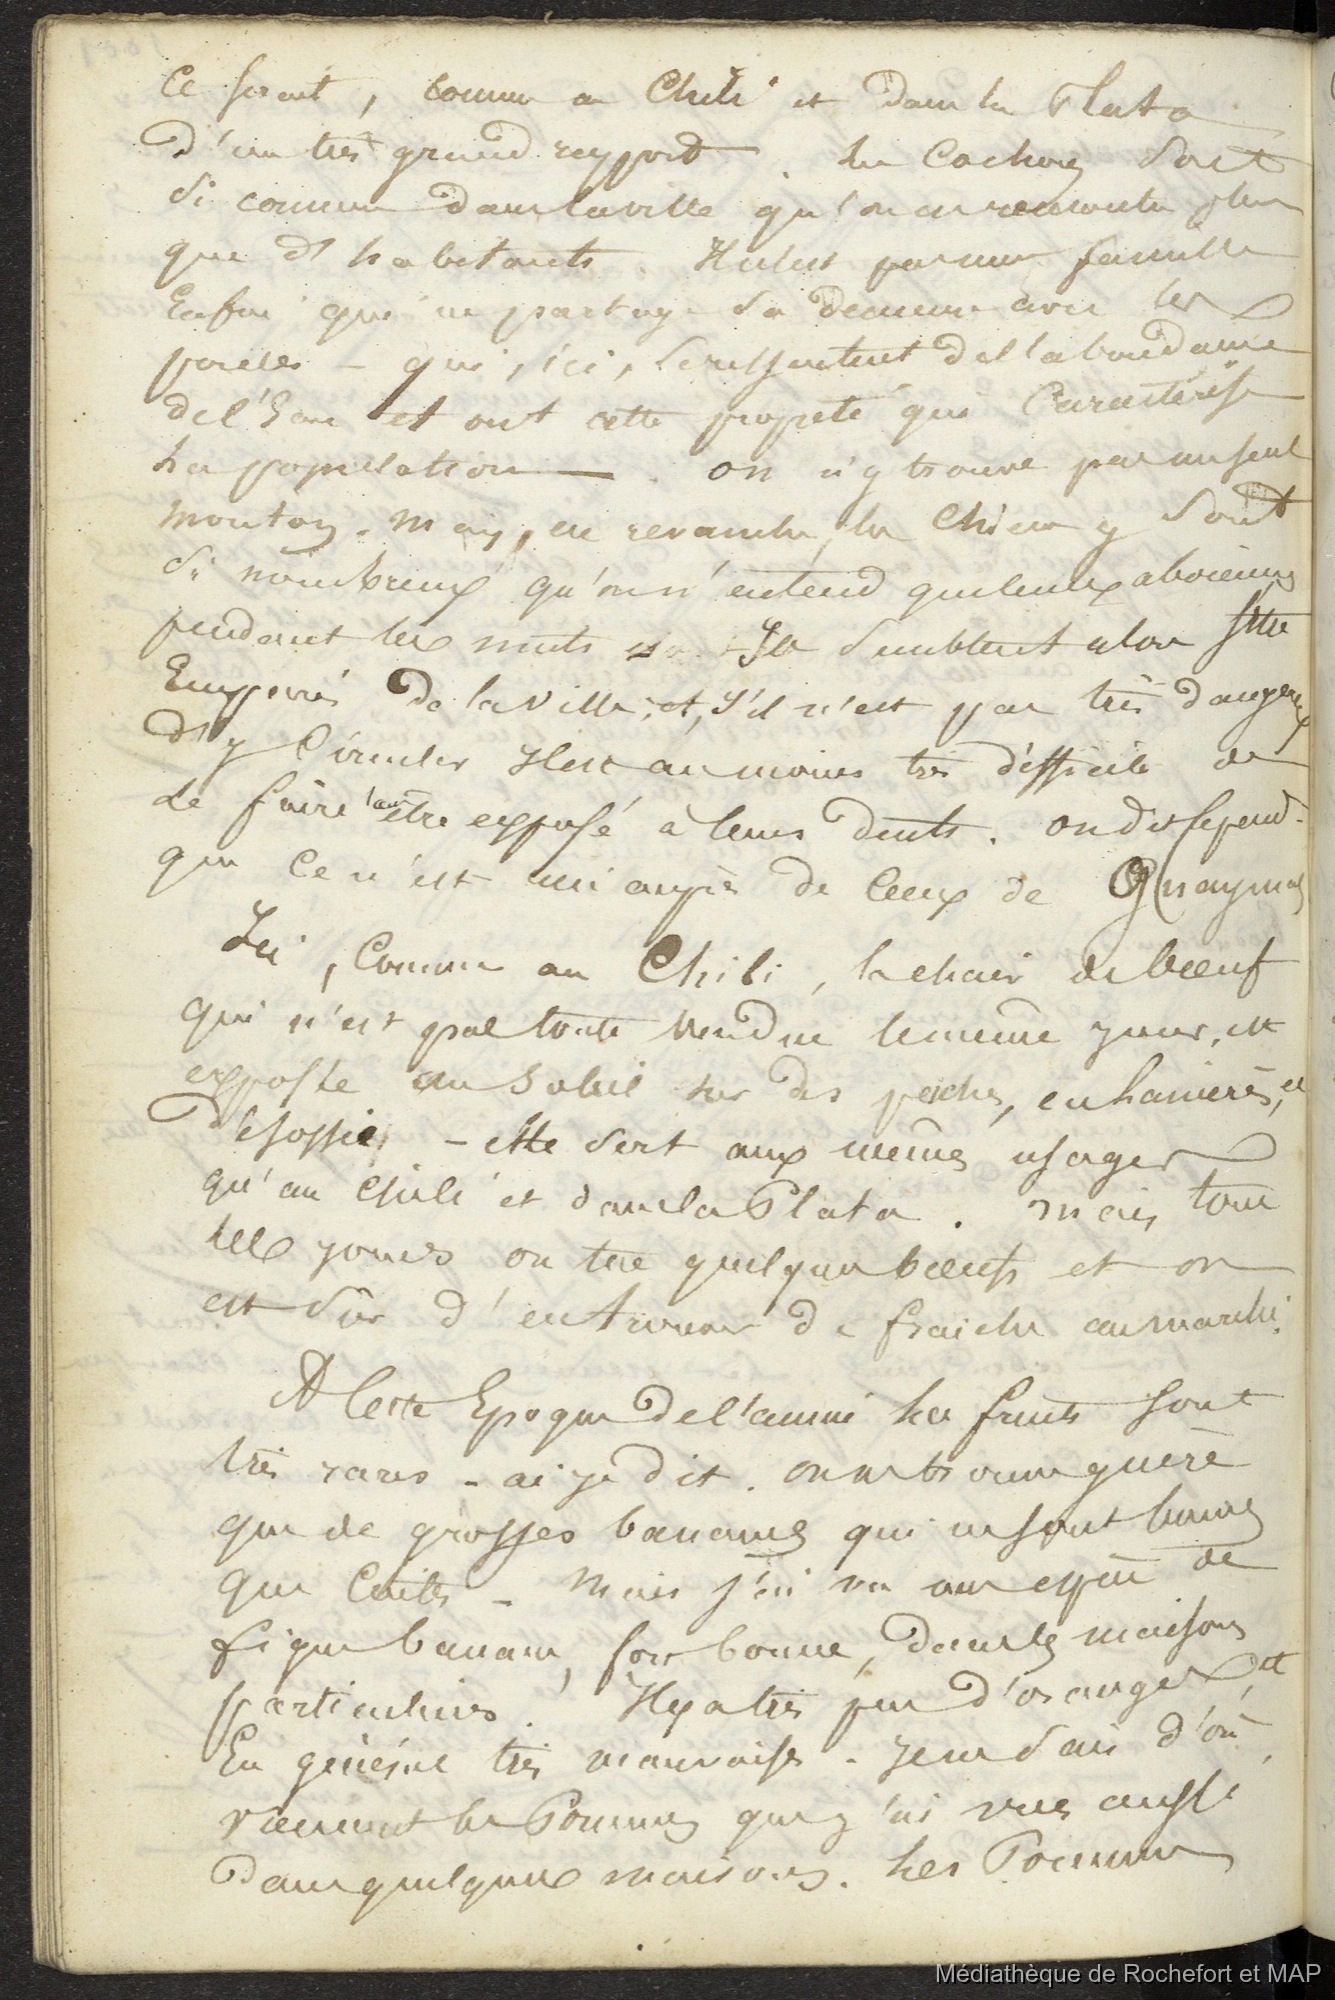 Ce serait, comme au Chili et dans la Plata
d'un très grand rapport. Les Cochons sont
si commun dans la ville qu'on en rencontre plus
que d'habitants. Il n'est pas une famille
Enfin qui ne partage sa demeure avec les
porcs – qui, ici, se ressentent de l'abondance
de l'Eau et ont cette propreté qui Caractérise
la population —. on n'y trouve pas un seul
mouton. Mais, en revanche, les Chiens y sont
si nombreux qu'on n'entend que leurs aboiemens
pendant les nuits. Ils semblent alors s'être
Emparés de la ville; et, s'il n'est pas très dangereux
d'y Circuler Il est au moins très difficile de
le faire sans être exposé à leurs dents. on dit cepend.
que ce n'est rien auprès de Ceux de Guaymas
Ici, Comme au Chili, la chair de boeuf
qui n'est pas toute vendue le même jour, est
exposée au Soleil sur des perches, en lanières, et
désossée – elle sert aux mêmes usages
qu'au Chili et dans la Plata. Mais tous
les jours on tue quelques boeufs et on
est sûr d'en trouver de fraiche au marché.
A Cette Epoque de l'année les fruits sont
très rares – ai je dit. on ne trouve guère
que de grosses bananes qui ne sont bonnes
que Cuites – Mais j'ai vu une espèce de
figue banane, fort bonne, dans les maisons
particulières. Il y a très peu d'oranges, et
En général très mauvaises – Je ne sais d'où
viennent les Pommes que j'ai vues aussi
dans quelques maisons. Les Pommes
Médiathèque de Rochefort et MAP